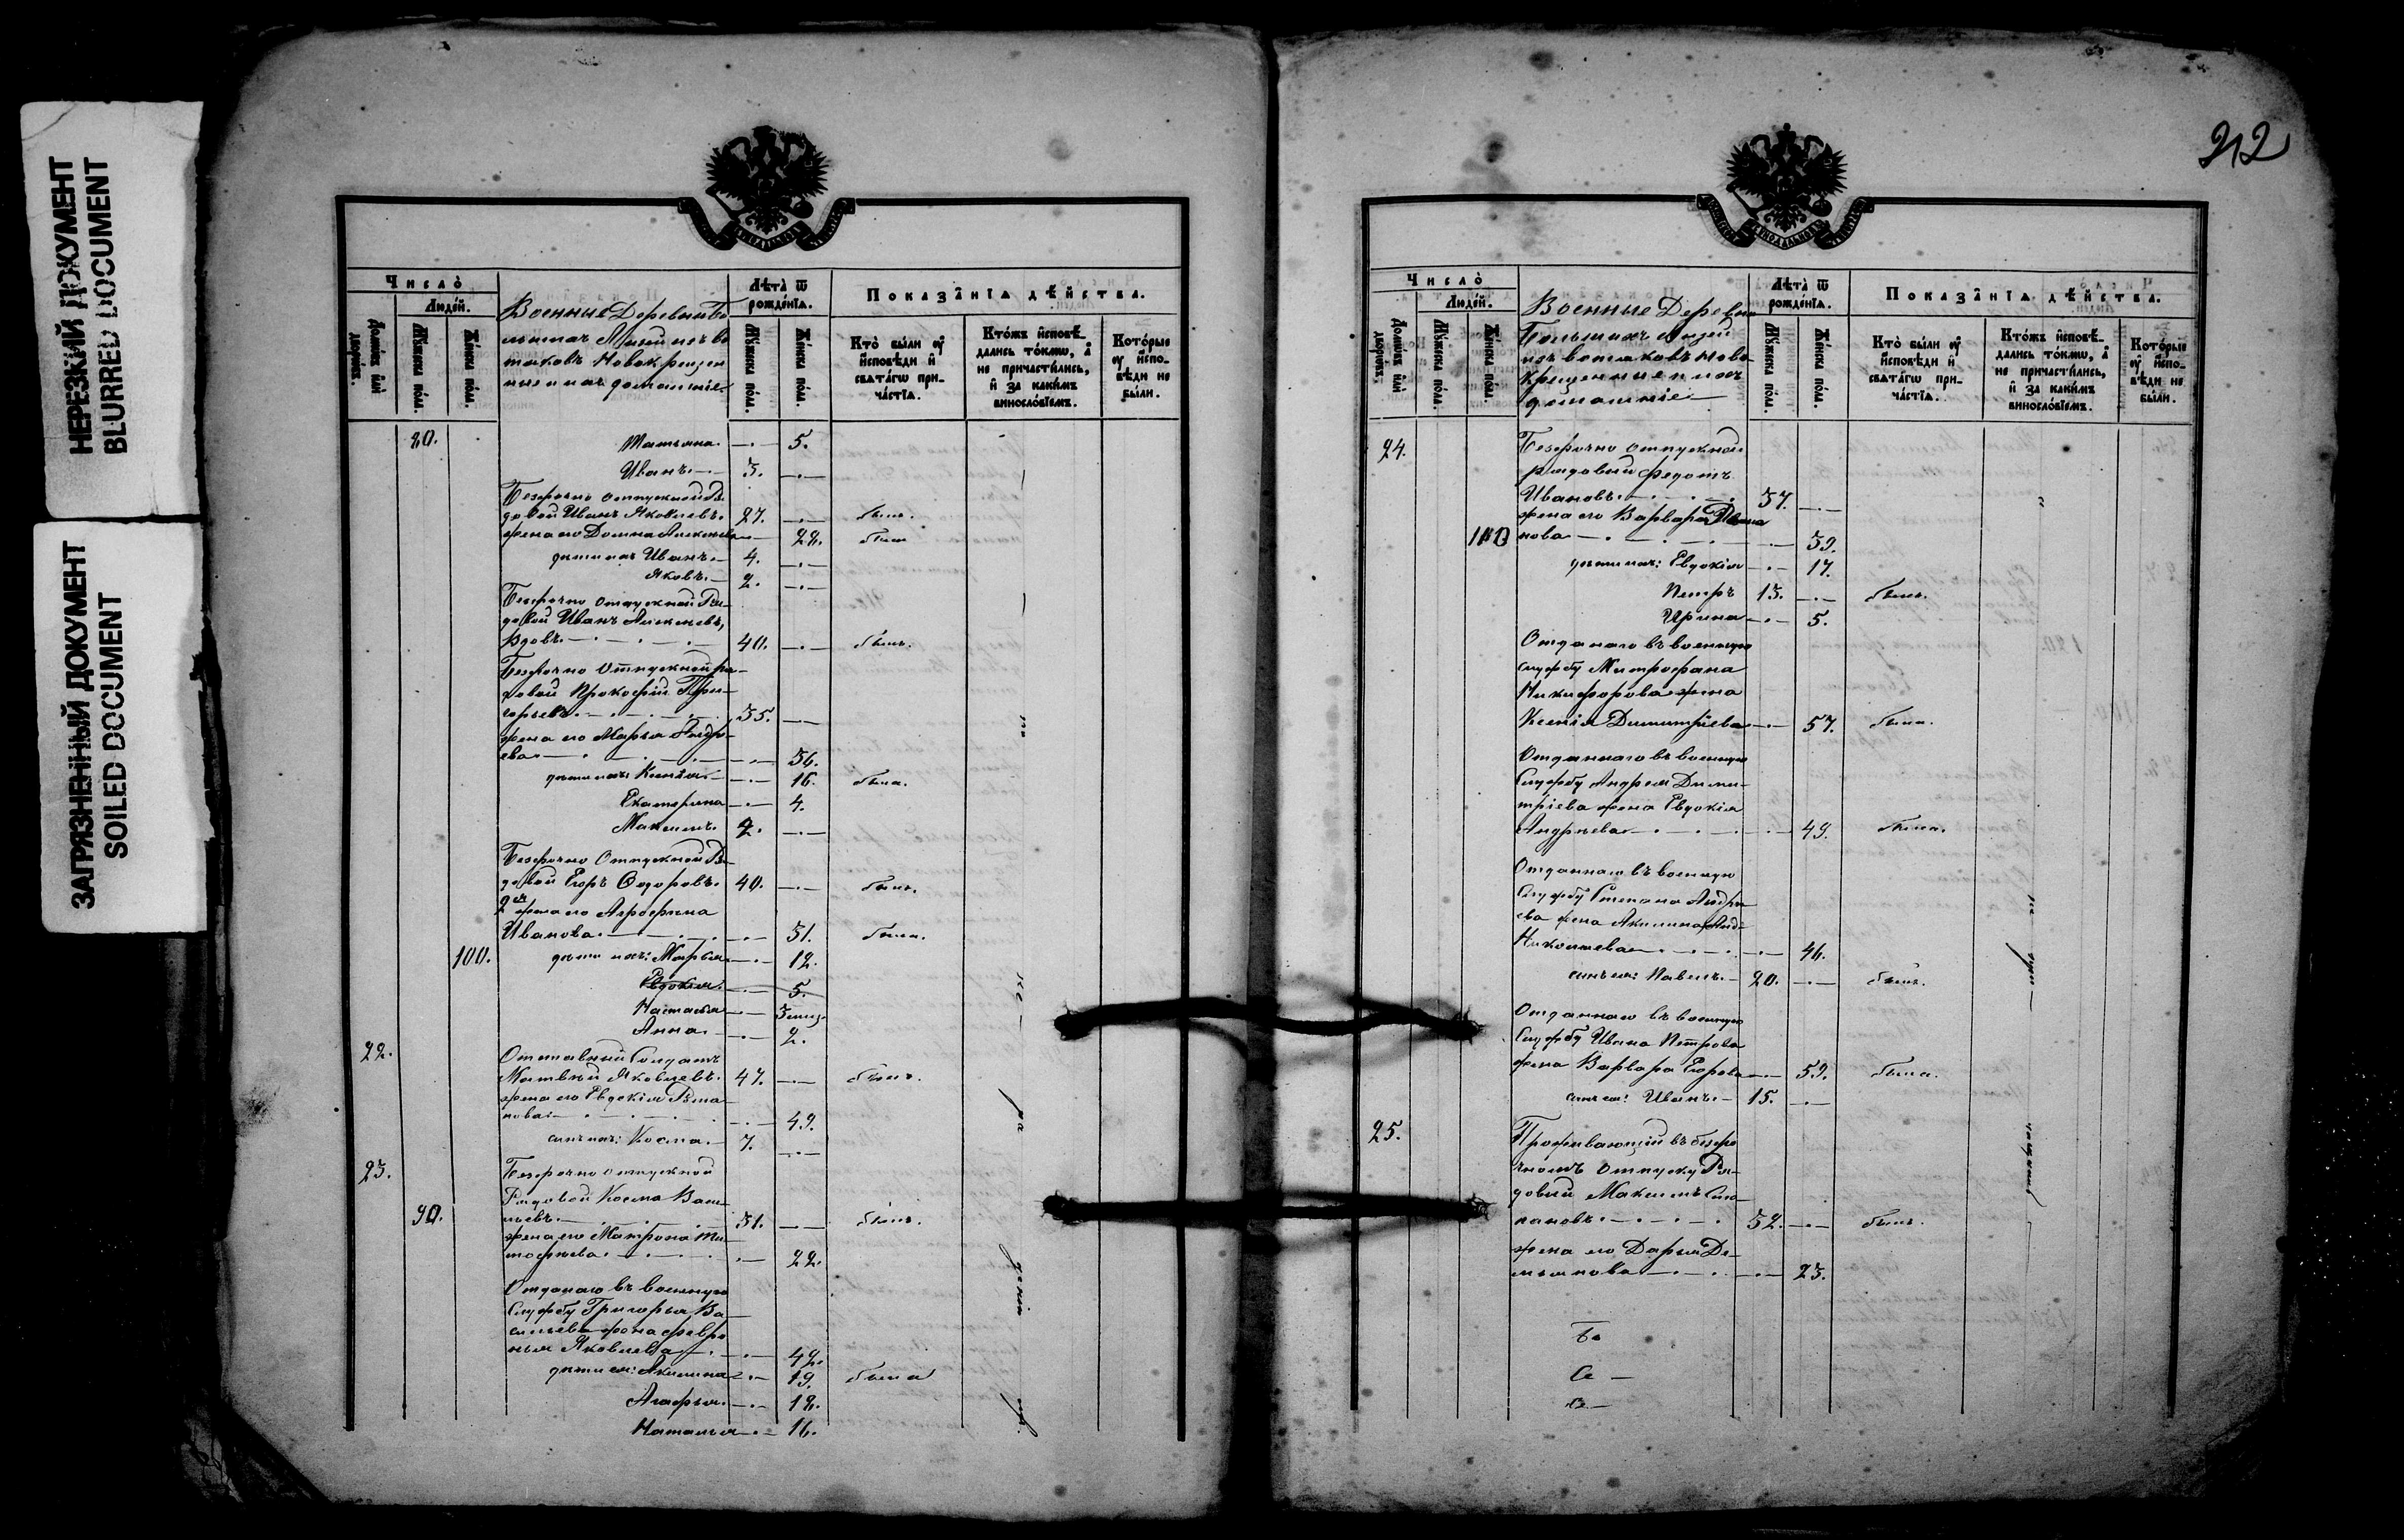 НЕРЕЗКИЙ ДОКУМЕНТ
BLURRED DOCUMENT
ЗАГРЯЗНЕННЫЙ ДОКУМЕНТ
SOILED DOCUMENT
Число̀
Люде́й.
Домѡ́въ и҆лѝ дворѡ́въ.
Мꙋ́жеска по́ла.
Же́нска по́ла.
Военные Деревни Бо
новокрещен
ные и ихъ домашніе
Лѣ́та ѿ рожде́нїѧ.
Мꙋ́жеска по́ла.
Же́нска по́ла.
Показа̑нїѧ дѣ́йства.
Кто̀ бы́ли ᲂу҆ и҆сповѣ́ди и҆ свѧта́гѡ причⷭ҇тїѧ.
Кто́жъ и҆сповѣ́дались то́кмѡ, а҆ не причасти́лись, и҆ за каки́мъ винословїемъ.
Кото́рые ᲂу҆ и҆сповѣ́ди не бы́ли.
80. Татьяна 5.
Иванъ 3.
Безсрочно отпускной Ря
довой Иванъ Яковлевъ 27. былъ.
жена его Домна Алексѣева 28. была
дѣти ихъ Иванъ 4.
Яковъ 2.
Безсрочно отпускной Ря
довой Иванъ Алексѣевъ,
вдовъ 40. былъ.
Безсрочно отпускной ря
довой Прокофій Гри
горьевъ 35.
жена его Марья Андре
ева 36.
дѣти ихъ Ксенія 16. была.
Екатерина 4.
Максимъ 2.
Безсрочно отпускной Ря
довой Егоръ Ѳедоровъ 40. былъ.
2я жена его Агрофина
Иванова 31. была.
100. дѣти ихъ: Марья 12.
Евдокія 5.
Настасья 3 мец.
Анна 2.
22. Отставный Солдатъ
Матвѣй Яковлевъ 47. былъ.
жена его Евдокія Рома
нова 49.
сынъ ихъ: Косма 7.
23. Безсрочно отпускной
Рядовой Косма Васи
90. льевъ 31. былъ.
жена его Матрона Ти
мофѣева 22.
Отданаго въ военную
Службу Григорья Ва
сильева жена Февро
нья Яковлева 42.
дѣти ея: Акилина 19. была
Агафья 18.
Наталья 16.
212
Число̀
Люде́й.
Домѡ́въ и҆лѝ дворѡ́въ.
Мꙋ́жеска по́ла.
Же́нска по́ла.
Военные Деревни
Большихъ
изъ вотяковъ ново
крещенные и ихъ
домашніе
Лѣ́та ѿ рожде́нїѧ.
Мꙋ́жеска по́ла.
Же́нска по́ла.
Показа̑нїѧ дѣ́йства.
Кто̀ бы́ли ᲂу҆ и҆сповѣ́ди и҆ свѧта́гѡ причⷭ҇тїѧ.
Кто́жъ и҆сповѣ́дались то́кмѡ, а҆ не причасти́лись, и҆ за каки́мъ винословїемъ.
Кото́рые ᲂу҆ и҆сповѣ́ди не бы́ли.
24. Безсрочно отпускной
рядовый Федотъ
Ивановъ 37.
жена его Варвара
110 нова 39.
дѣти ихъ: Евдокія 17.
Петръ 13. былъ.
Ирина 5.
Отданаго въ военную
службу Митрофана
Никифорова жена
Ксенія Димитріева 57. была.
Отданнаго въ военную
Службу Андрея Дими
тріева жена Евдокія
Андреева 49. была.
Отданнаго въ военную
Службу Степана Андре
ева жена Акилина
Николаева 46.
сынъ ея: Павелъ 20. былъ.
Отданнаго въ военную
Службу Ивана Петрова
жена Варвара Егорова 59. была.
сынъ ея: Иванъ 15.
25. Проживающій въ безсро
чномъ отпуску Ря
довый Максимъ Сте
пановъ 32. былъ.
жена его Дарья Де
мьянова 23.